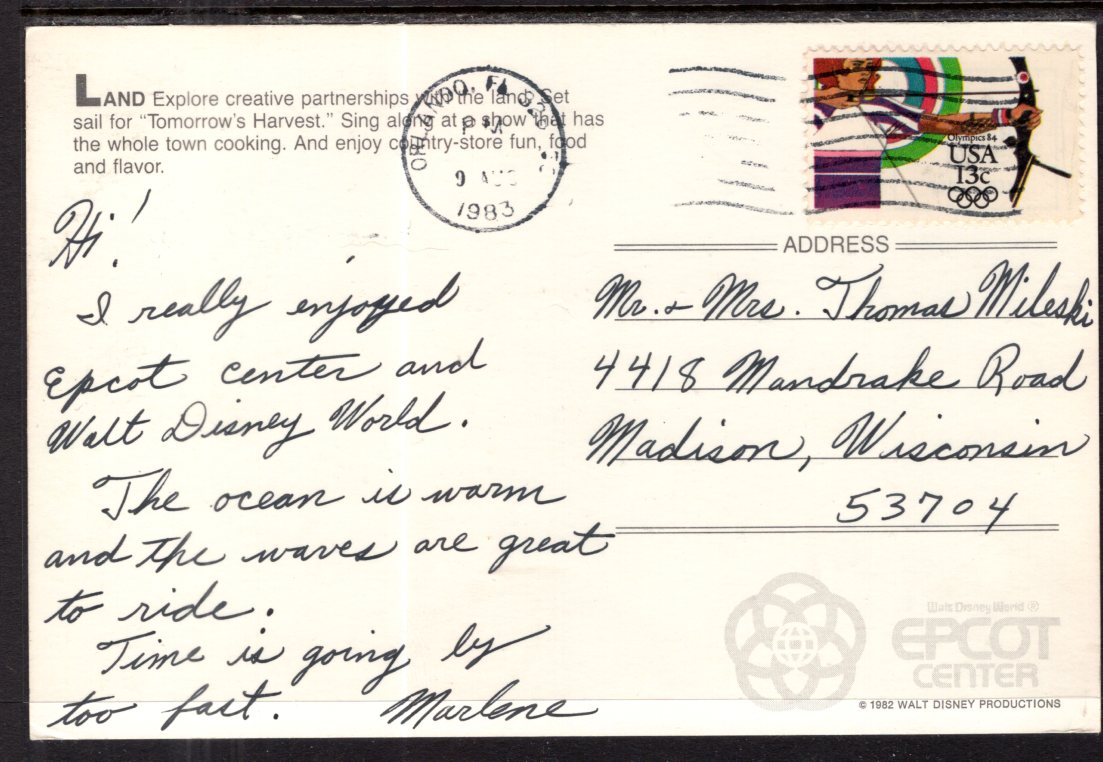 LAND Explore creative partnerships with the land. Set
sail for “Tomorrow’s Harvest.” Sing along at a show that has
the whole town cooking. And enjoy country-store fun, food
and flavor.
ORLANDO, FL
PM
9 AUG
1983
Olympics 84
USA
13c
Hi!
I really enjoyed
Epcot center and
Walt Disney World.
The ocean is warm
and the waves are great
to ride.
Time is going by
too fast. Marlene
ADDRESS
Mr. + Mrs. Thomas Mileski
4418 Mandrake Road
Madison, Wisconsin
53704
Walt Disney World ®
EPCOT
CENTER
© 1982 WALT DISNEY PRODUCTIONS